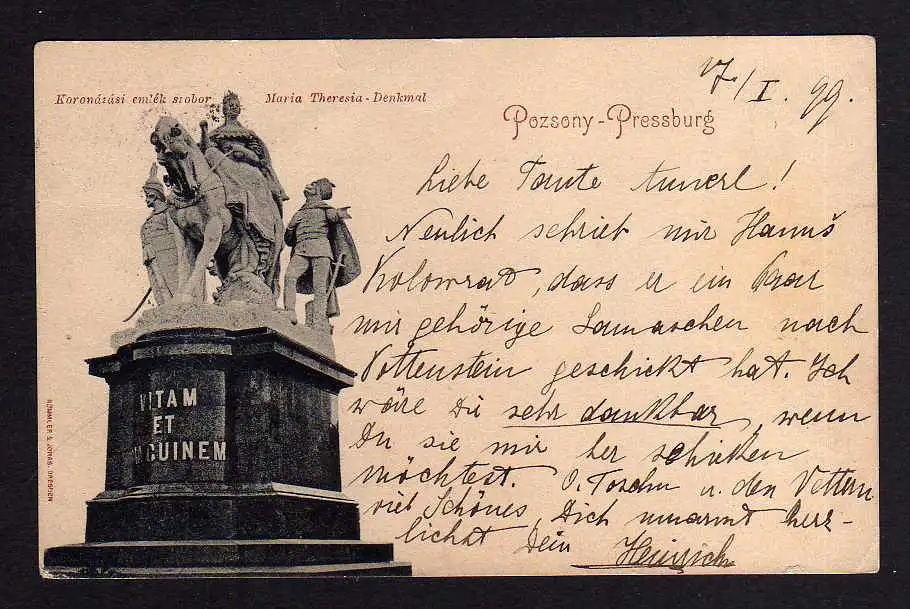 17./I. 99.
Koronázási emlék szobor
Maria Theresia-Denkmal
Pozsony-Pressburg
Liebe Tante Annerl!
Neulich schrieb mir Hanuš
Kolowrat, dass er ein Paar
mir gehörige Gamaschen nach
Vottenstein geschickt hat. Ich
wäre Dir sehr dankbar, wenn
Du sie mir her schicken
möchtest. O. u. den Vettern
viel Schönes, Dich umarmt herz-
lichst Dein Heinrich
VITAM
ET
GUINEM
RÖMMLER & JONAS, DRESDEN